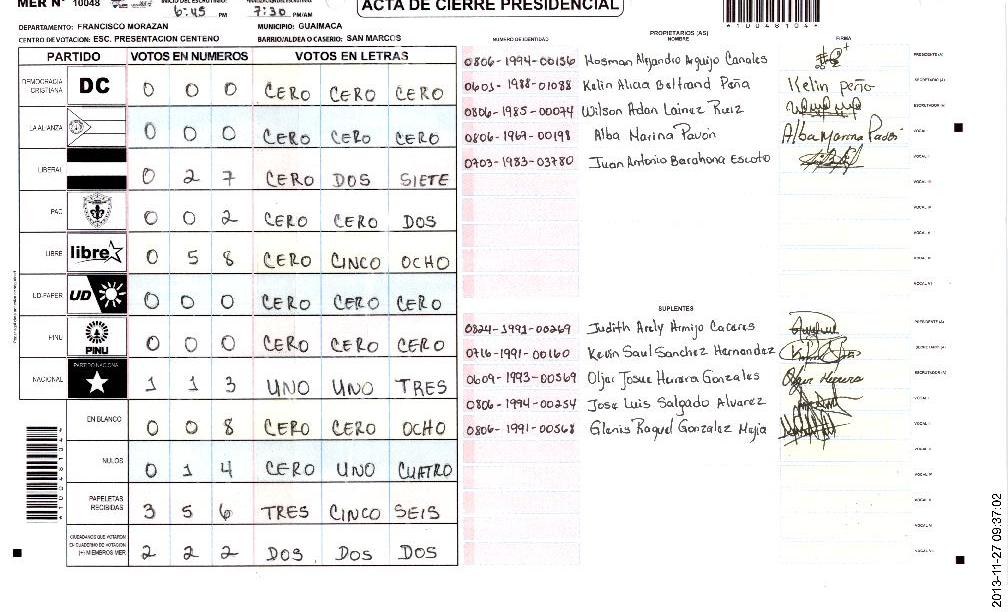 MER N° 10048 ACTA DE CIERRE PRESIDENCIAL
6:45 PM 7:30 PM/AM
*10048104*
DEPARTAMENTO: FRANCISCO MORAZAN MUNICIPIO: GUAIMACA
CENTRO DE VOTACION: ESC. PRESENTACION CENTENO BARRIO/ALDEA O CASERIO: SAN MARCOS
PARTIDO VOTOS EN NUMEROS VOTOS EN LETRAS
DEMOCRACIA CRISTIANA DC 0 0 0 CERO CERO CERO
LA ALIANZA 0 0 0 CERO CERO CERO
LIBERAL 0 2 7 CERO DOS SIETE
PAC 0 0 2 CERO CERO DOS
LIBRE libre 0 5 8 CERO CINCO OCHO
UD-FAPER UD 0 0 0 CERO CERO CERO
PINU PINU 0 0 0 CERO CERO CERO
NACIONAL PARTIDO NACIONAL 1 1 3 UNO UNO TRES
EN BLANCO 0 0 8 CERO CERO OCHO
NULOS 0 1 4 CERO UNO CUATRO
PAPELETAS RECIBIDAS 3 5 6 TRES CINCO SEIS
CIUDADANOS QUE VOTARON EN CUADERNO DE VOTACION (+) MIEMBROS MER 2 2 2 DOS DOS DOS
NUMERO DE IDENTIDAD PROPIETARIOS (AS) NOMBRE FIRMA
0806-1994-00136 Hosman Alejandro Arguijo Canales PRESIDENTE (A)
0603-1988-01088 Kelin Alicia Beltrand Peña Kelin peño SECRETARIO (A)
0806-1985-00074 Wilson Adan Lainez Ruiz ESCRUTADOR (A)
0806-1969-00198 Alba Marina Pavón Alba Marina Pavón VOCAL I
0703-1983-03780 Juan Antonio Barahona Escoto VOCAL II
VOCAL III
VOCAL IV
VOCAL V
VOCAL VI
SUPLENTES
0824-1991-00269 Judith Arely Armijo Caceres PRESIDENTE (A)
0716-1991-00160 Kevin Saul Sanchez Hernandez SECRETARIO (A)
0609-1993-00569 Oljar Josue Herrera Gonzales ESCRUTADOR (A)
0806-1994-00254 Jose Luis Salgado Alvarez VOCAL I
0806-1991-00568 Glenis Raquel Gonzalez Mejia VOCAL II
2013-11-27 09:37:02